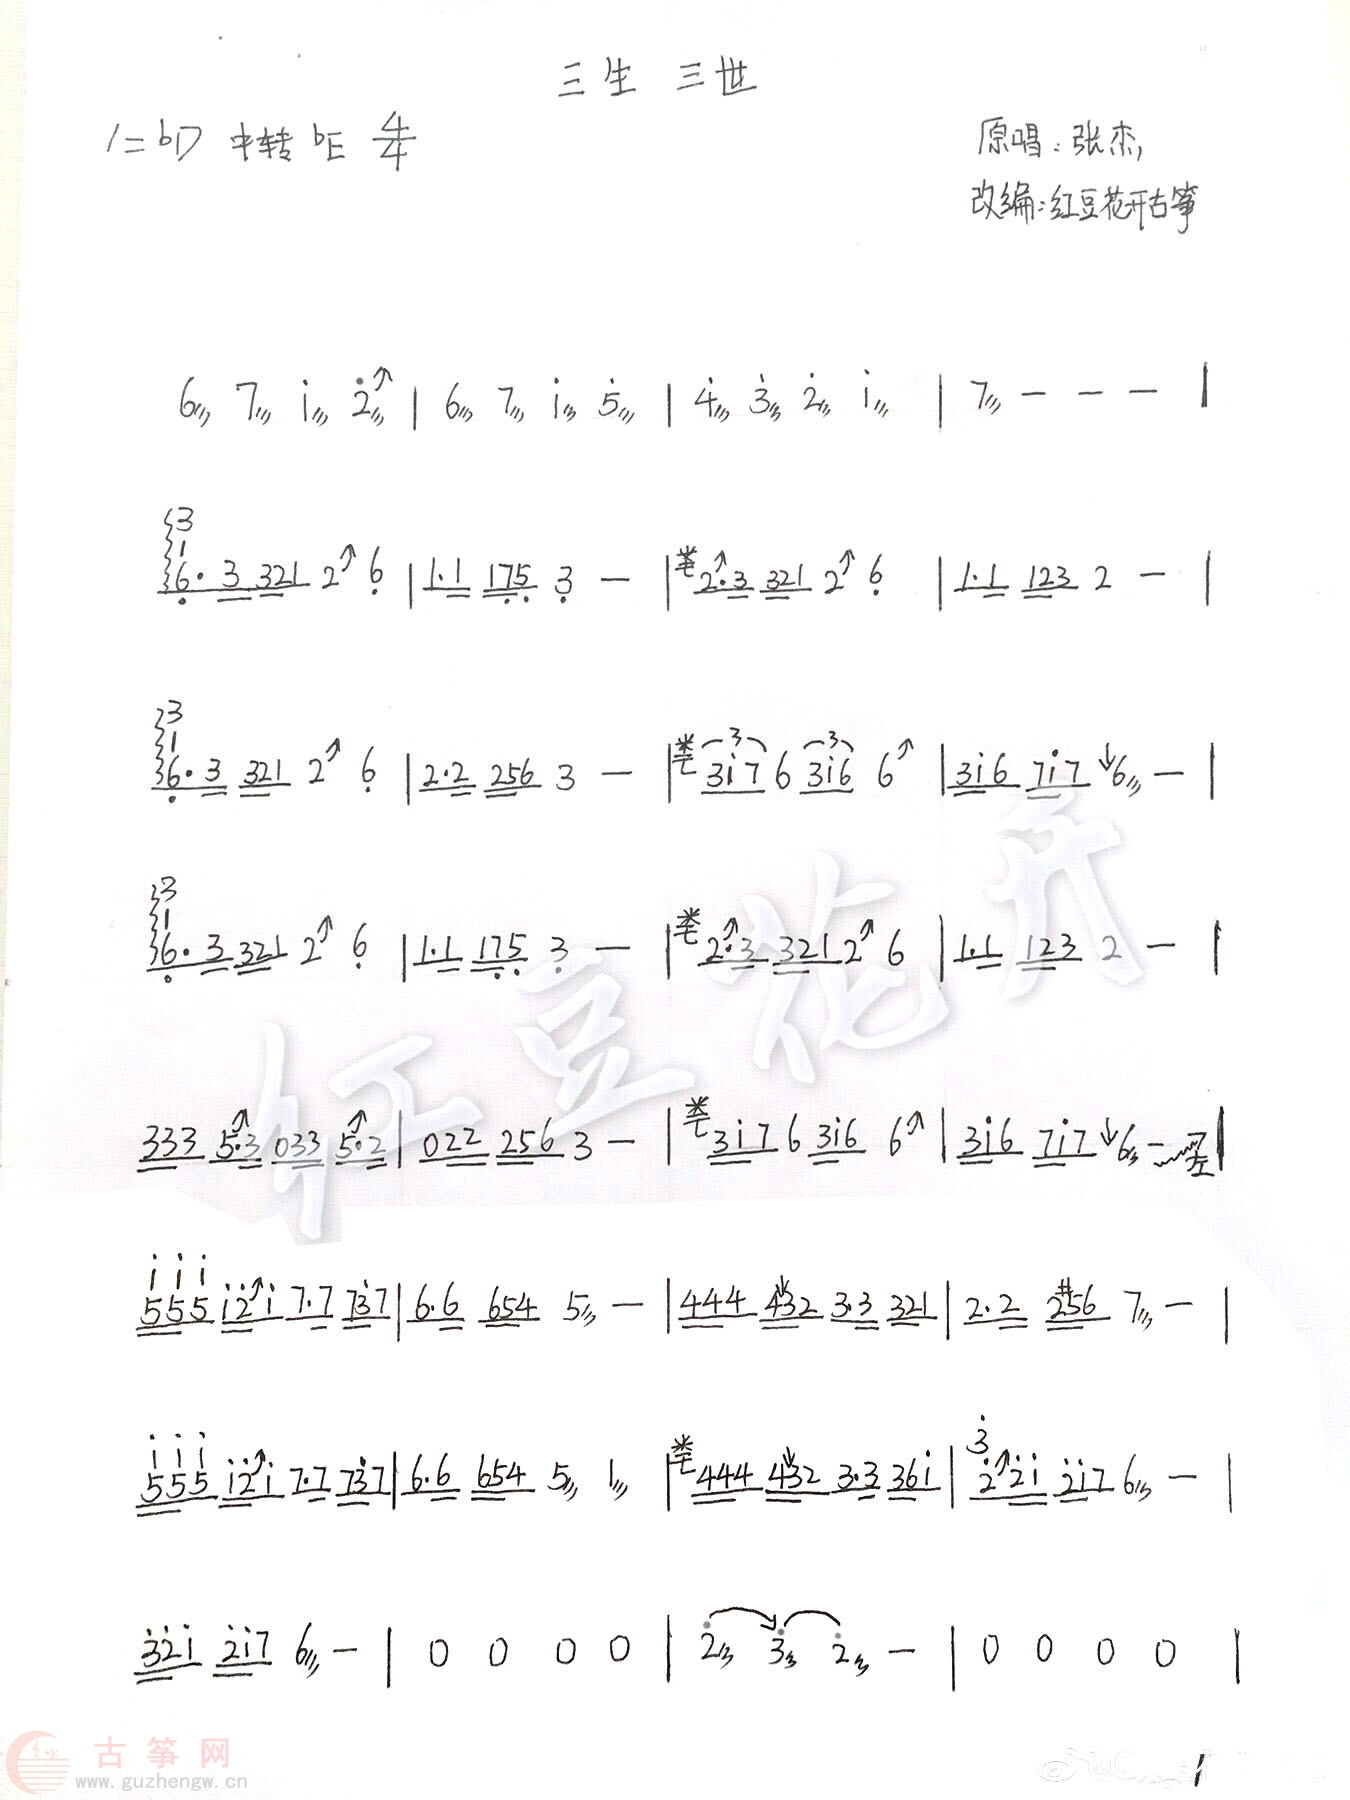 三生 三世
1=bD 中转 bE 4/4
原唱：张杰
改编：红豆花开古筝
6 7 i 2̇ | 6 7 i 5̇ | 4̇ 3̇ 2̇ i | 7 — — — |
3
1
3 6̣· 3 321 2↗ 6̣ | 1·1 17̣5̣ 3̣ — | 2↗·3 321 2↗ 6̣ | 1·1 123 2 — |
3
1
3 6̣· 3 321 2↗ 6̣ | 2·2 256 3 — | 3i7 6 3i6 6↗ | 3i6 7i7 ↓6 — |
3
1
3 6̣· 3 321 2↗ 6̣ | 1·1 17̣5̣ 3̣ — | 2↗·3 321 2↗ 6 | 1·1 123 2 — |
333 5↗·3 033 5↗·2 | 022 256 3 — | 3i7 6 3i6 6↗ | 3i6 7i7 ↓6 — |
i i i
555 i2̇↗i 7·7 73̇7 | 6·6 654 5 — | 444 432 3·3 321 | 2·2 2#56 7 — |
i i i
555 i2̇↗i 7·7 73̇7 | 6·6 654 5 1 | 444 432 3·3 36i | 3̇ 2̇↗2̇i 2̇i7 6 — |
3̇2̇i 2̇i7 6 — | 0 0 0 0 | 2̇ 3̇ 2̇ — | 0 0 0 0 |
红豆花开
古筝网
www.guzhengw.cn
1